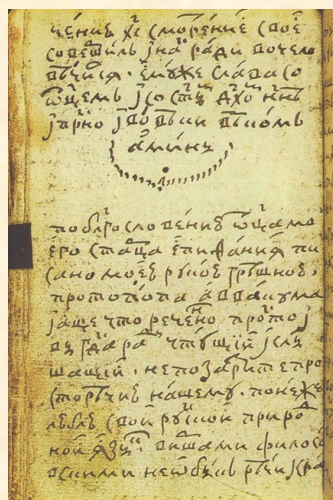 чение хс҃ смотрение своѐ
совершилъ
ради вочело
вѣчния. емуже слава со
ѿцемъ
и дх҃омъ нн҃ѣ
во вѣки вѣкомъ
аминь
по благословению ѿца мо
его старца епифания пи
сано моею рукою грѣшною,
протопопа аввакума
и аще что реченно просто,
и вы гд҃а ради, чтущии и слы
шащии, не позазрите про
сторѣчию нашему. понеже
люблю свои рускои приро
нои языкъ. виршами филосо
вскими не обыкъ рѣчи кра